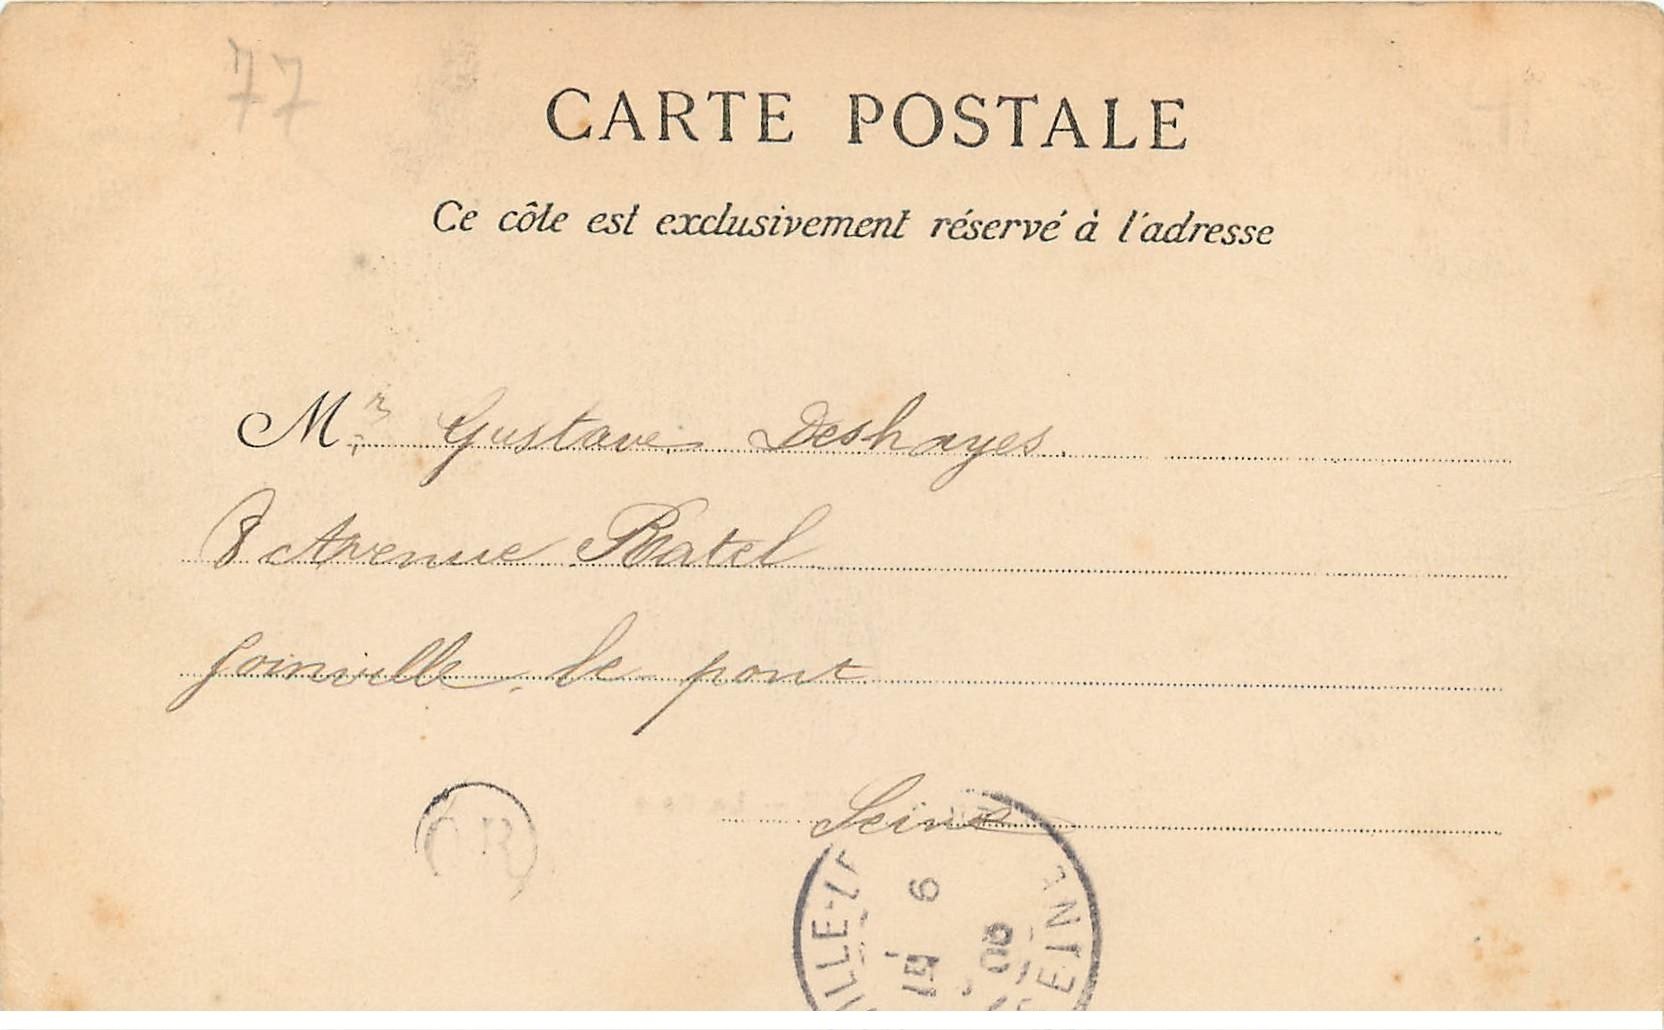 77
CARTE POSTALE
Ce côté est exclusivement réservé à l'adresse
Mr Gustave Deshayes
8 Avenue Ratel
Joinville le pont
Seine
OR
ILLE-L
6
15
06
SEINE